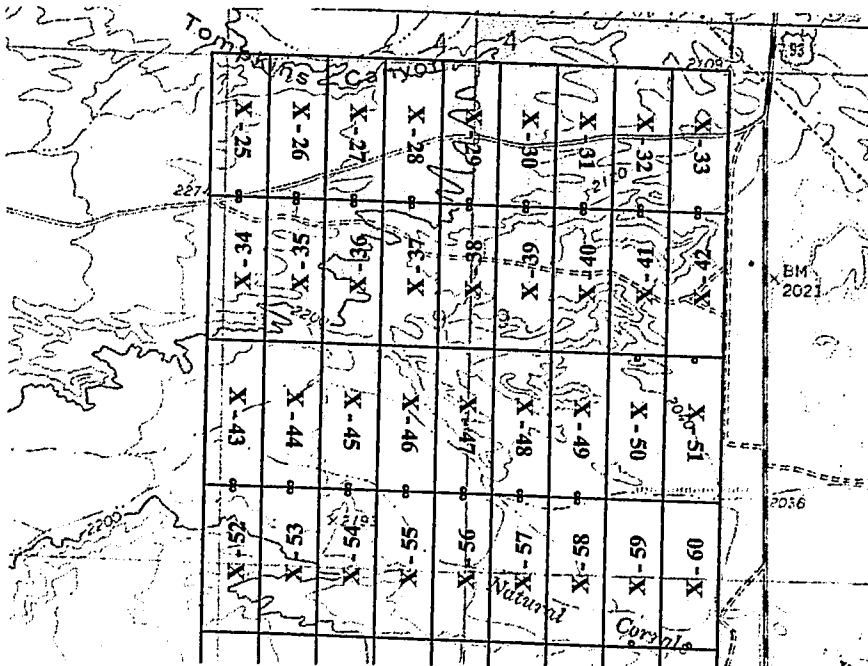 Tompkins Canyon
4 4
93
2109
X-25 X-26 X-27 X-28 X-29 X-30 X-31 X-32 X-33
227
X-34 X-35 X-36 X-37 X-38 X-39 X-40 X-41 X-42
BM
2021
X-43 X-44 X-45 X-46 X-47 X-48 X-49 X-50 X-51
2040
2036
2200
X-52 X-53 X-54 X-55 X-56 X-57 X-58 X-59 X-60
2193
Natural Corrals